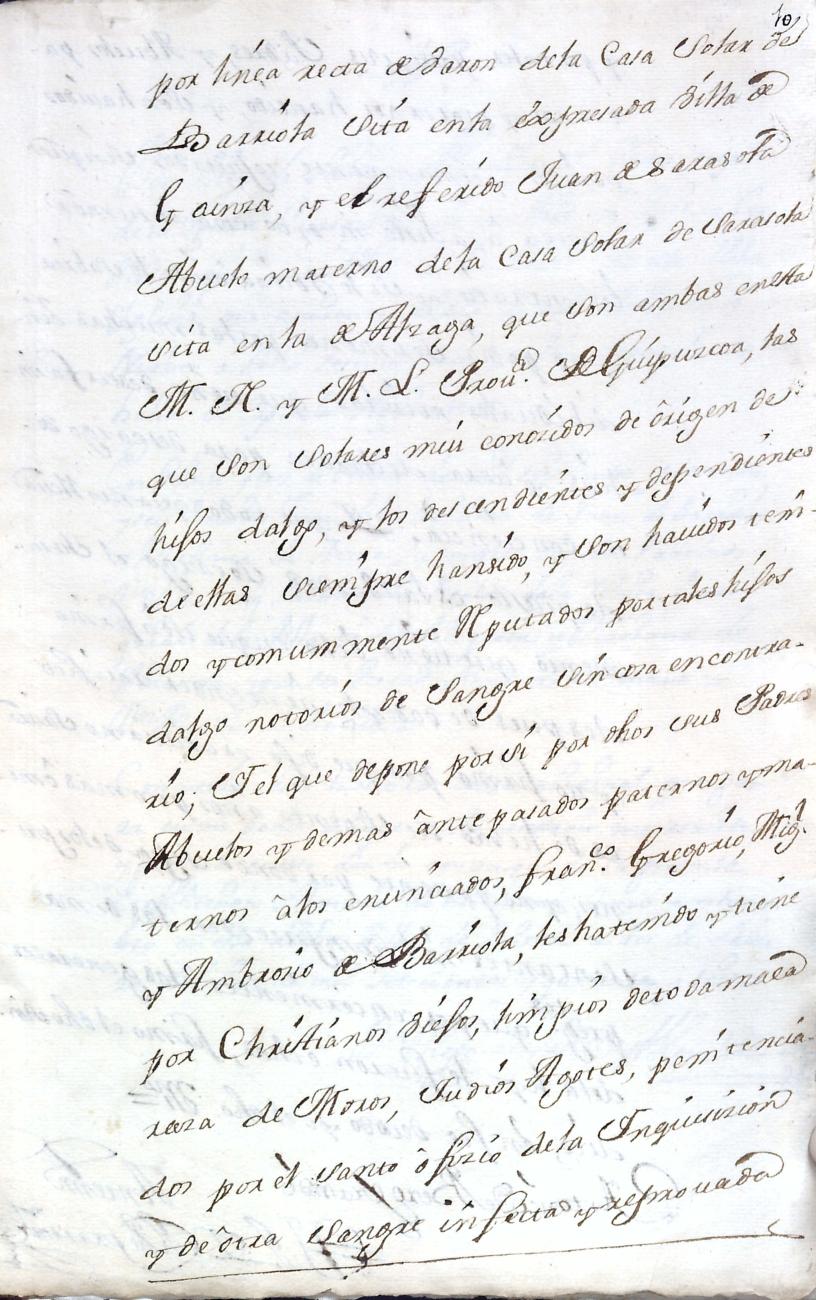 10
por linéa recta de Varon dela Casa Solar de
Barriola Sita enla expresada Villa de
Gainza, y el referido Juan de Sarasola
Abuelo materno dela Casa Solar de Sarasola
sita enla de Alzaga, que son ambas enesta
M. N. y M. L. Prouª. de Guipuzcoa, las
que son Solares mui conozidos de origen de
hijos dalgo, y los descendientes y dependientes
de ellas siempre hansido, y son hauidos teni-
dos y comummente Reputados portales hijos
dalgo notorios de Sangre sin cosa encontra-
rio; Iel que depone por si por dhos sus Padres
Abuelos y demas antepasados paternos y ma-
ternos a los enunciados, franco. Gregorio, Migl.
y Ambrosio de Barriola, les hatenido y tiene
por Christianos Viejos, limpios detoda mala
raza de Moros, Judios Agotes, penitencia-
dos por el santo ofizio dela Inquisizion
y de otra Sangre infecta y reprouada